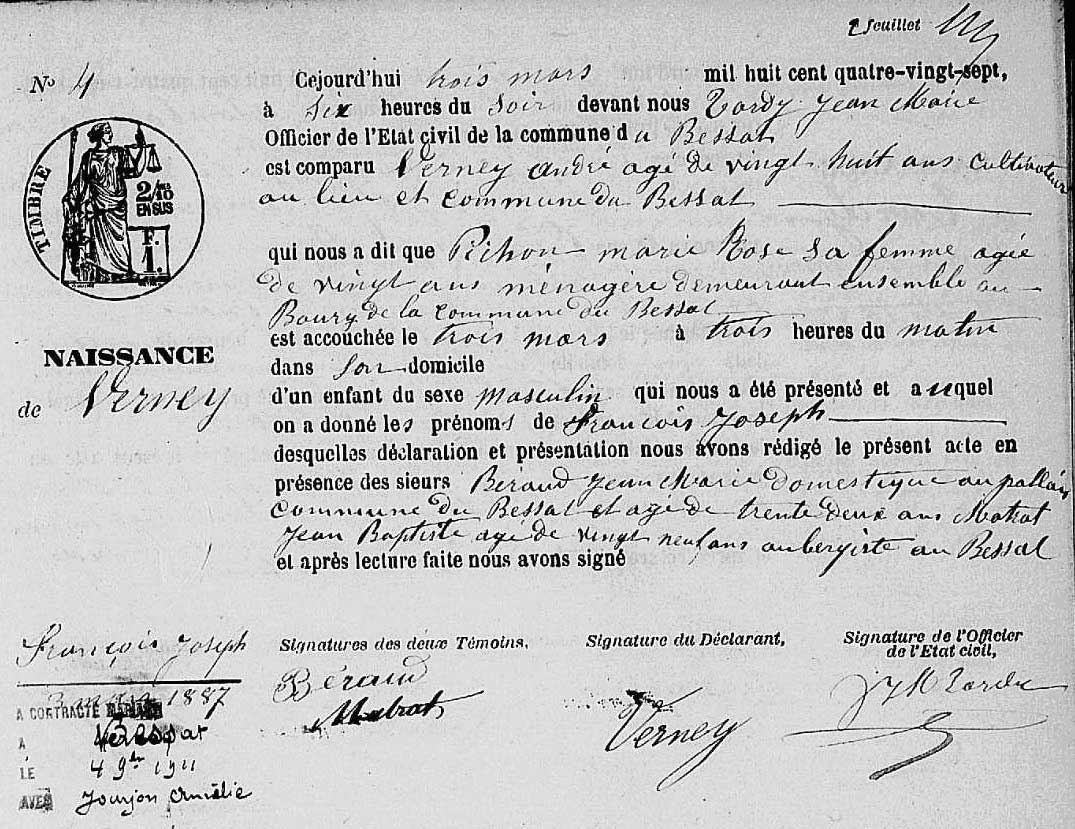 2 feuillet
No 4
Cejourd'hui trois mars mil huit cent quatre-vingt-sept,
à Six heures du Soir devant nous Tardy Jean Marie
Officier de l'Etat civil de la commune du Bessat
est comparu Verney andré agé de vingt huit ans cultivateur
au lieu et commune du Bessat
TIMBRE
2/10
EN SUS
F.
1.
qui nous a dit que Pichon marie Rose sa femme agée
de vingt ans ménagère demeurant ensemble au
Bourg de la commune du Bessat
est accouchée le trois mars à trois heures du matin
dans son domicile
NAISSANCE
de Verney
d'un enfant du sexe masculin qui nous a été présenté et auquel
on a donné les prénoms de François Joseph
desquelles déclaration et présentation nous avons rédigé le présent acte en
présence des sieurs Béraud Jean Marie domestique au pallais
commune du Bessat et agé de trente deux ans Matrat
Jean Baptiste agé de vingt neuf ans aubergiste au Bessat
et après lecture faite nous avons signé
François Joseph
3 1887
A CONTRACTÉ MARIAGE
A
LE 4 9bre 1911
AVEC Jourjon Amélie
Signatures des deux Témoins,
Béraud
Matrat
Signature du Déclarant,
Verney
Signature de l'Officier
de l'Etat civil,
J M Tardy